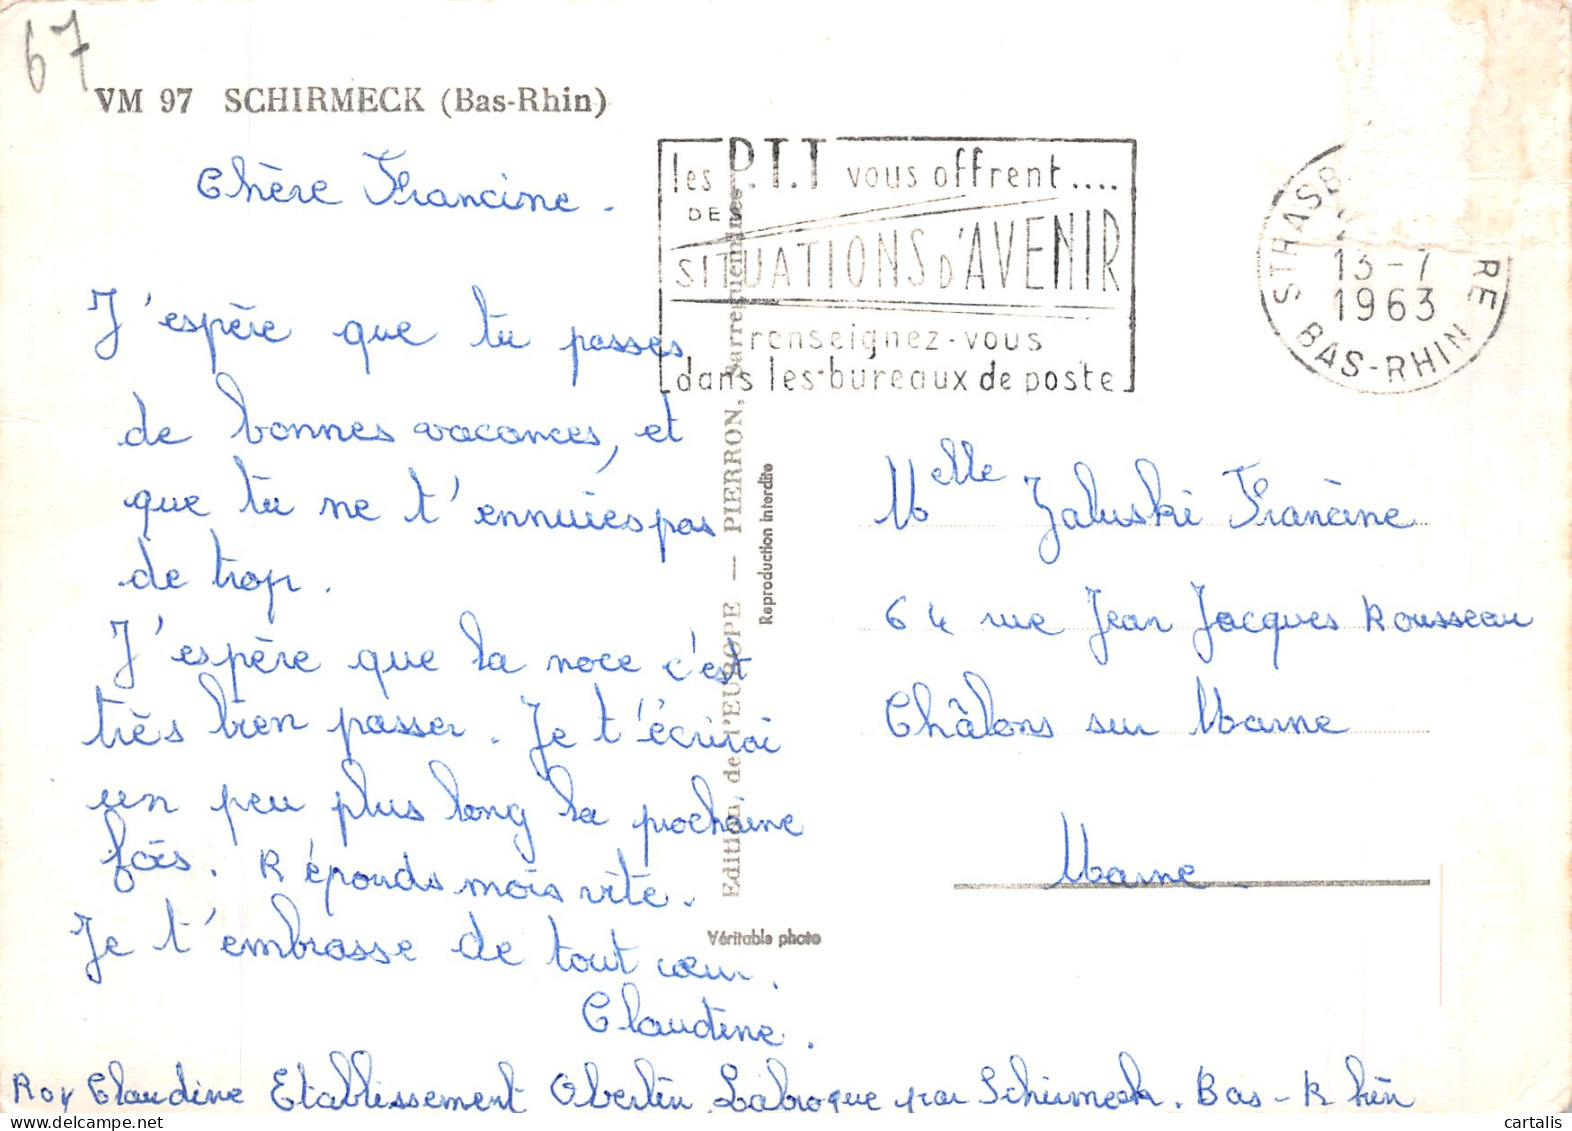 67
VM 97 SCHIRMECK (Bas-Rhin)
Chère Francine.
J'espère que tu passes
de bonnes vacances, et
que tu ne t'ennuies pas
de trop.
J'espère que la noce c'est
très bien passer. Je t'écrirai
un peu plus long la prochaine
fois. Réponds mois vite.
Je t'embrasse de tout cœur.
Claudine.
Roy Claudine Etablissement Oberlin Labroque par Schirmeck. Bas-Rhin
les P.T.T vous offrent....
DES
SITUATIONS D'AVENIR
renseignez-vous
dans les bureaux de poste
STRASB
RE
13-7
1963
BAS-RHIN
Edition de l'EUROPE — PIERRON, Sarreguemines
Reproduction interdite
Véritable photo
Melle Zaluski Francine
64 rue Jean Jacques Rousseau
Châlons sur Marne
Marne
cartalis